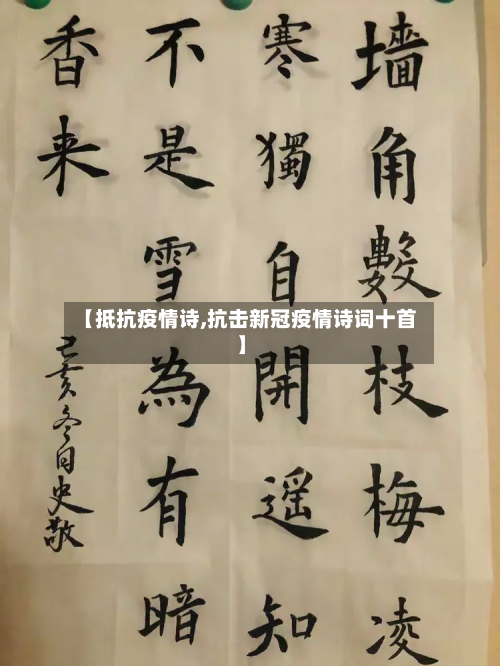 墙角數枝梅凌
寒獨自開遥知
不是雪為有暗
香来
己亥冬日史敬
【抵抗疫情诗,抗击新冠疫情诗词十首
】